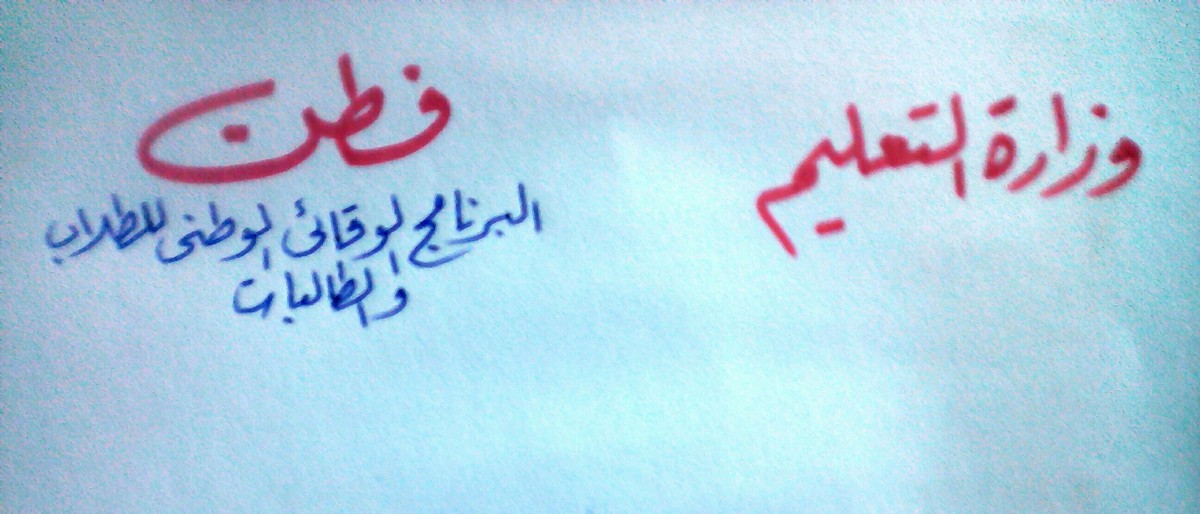 وزارة التعليم
فطن
البرنامج الوقائى الوطنى للطلاب
والطالبات